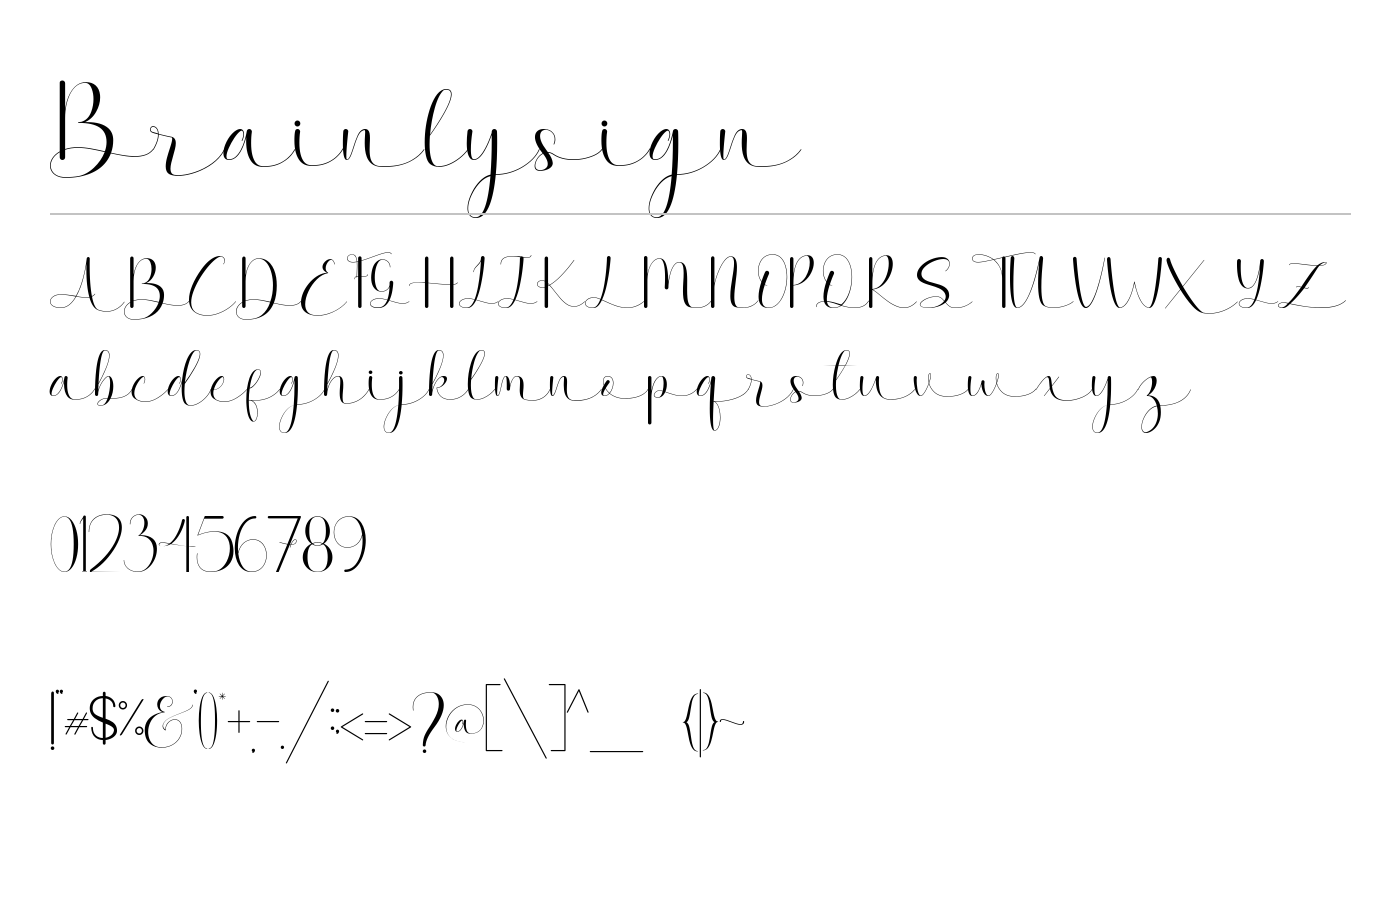 Brainlysign
ABCDEFGHIJKLMNOPQRSTUVWXYZ
abcdefghijklmnopqrstuvwxyz
0123456789
!"#$%&'()*+,-./:;<=>?@[\]^_{|}~